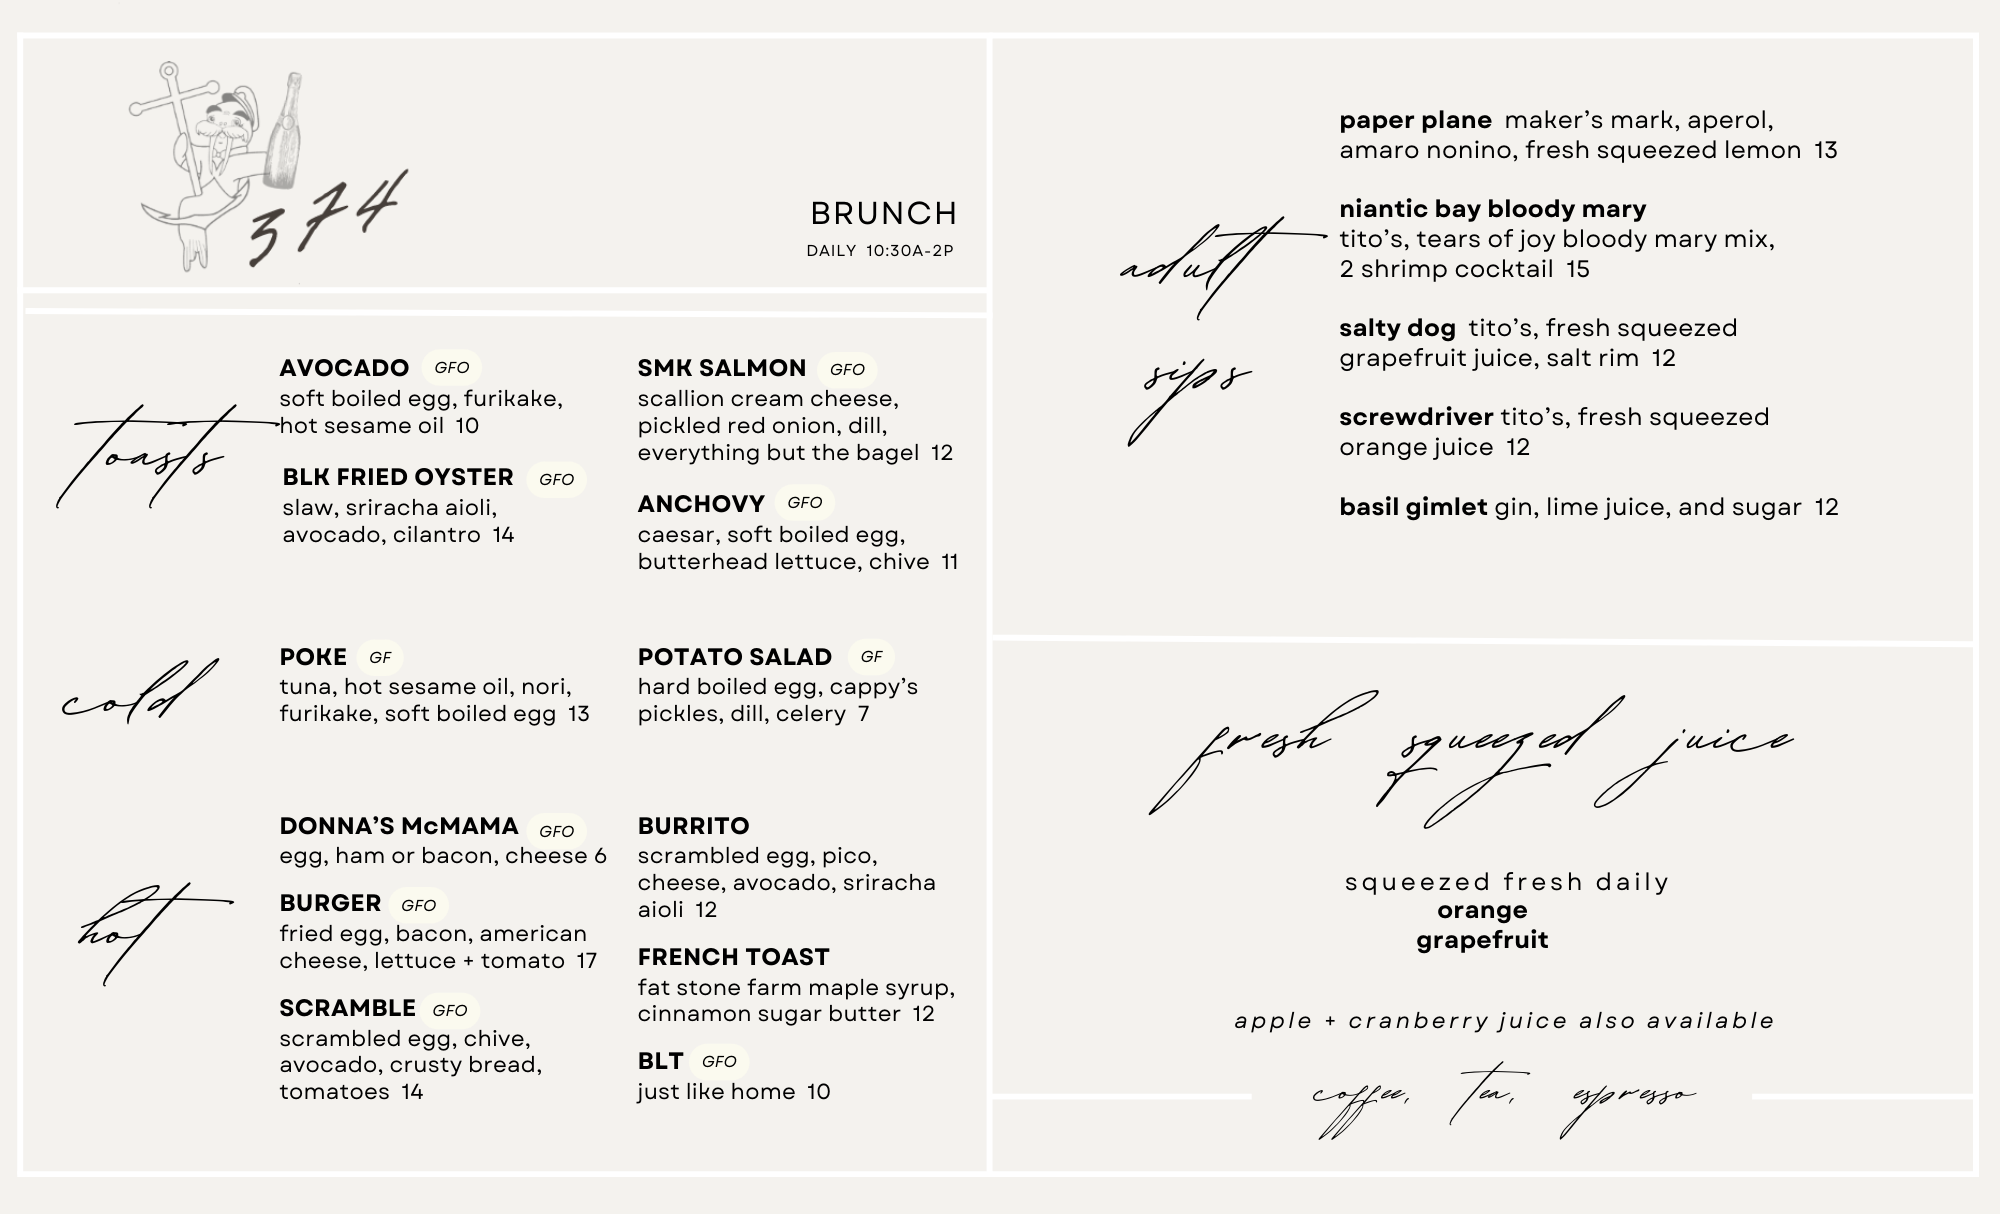 374
BRUNCH
DAILY 10:30A-2P
toasts
AVOCADO GFO
soft boiled egg, furikake,
hot sesame oil 10
BLK FRIED OYSTER GFO
slaw, sriracha aioli,
avocado, cilantro 14
SMK SALMON GFO
scallion cream cheese,
pickled red onion, dill,
everything but the bagel 12
ANCHOVY GFO
caesar, soft boiled egg,
butterhead lettuce, chive 11
cold
POKE GF
tuna, hot sesame oil, nori,
furikake, soft boiled egg 13
POTATO SALAD GF
hard boiled egg, cappy’s
pickles, dill, celery 7
hot
DONNA’S McMAMA GFO
egg, ham or bacon, cheese 6
BURGER GFO
fried egg, bacon, american
cheese, lettuce + tomato 17
SCRAMBLE GFO
scrambled egg, chive,
avocado, crusty bread,
tomatoes 14
BURRITO
scrambled egg, pico,
cheese, avocado, sriracha
aioli 12
FRENCH TOAST
fat stone farm maple syrup,
cinnamon sugar butter 12
BLT GFO
just like home 10
adult
sips
paper plane maker’s mark, aperol,
amaro nonino, fresh squeezed lemon 13
niantic bay bloody mary
tito’s, tears of joy bloody mary mix,
2 shrimp cocktail 15
salty dog tito’s, fresh squeezed
grapefruit juice, salt rim 12
screwdriver tito’s, fresh squeezed
orange juice 12
basil gimlet gin, lime juice, and sugar 12
fresh squeezed juice
squeezed fresh daily
orange
grapefruit
apple + cranberry juice also available
coffee, tea, espresso